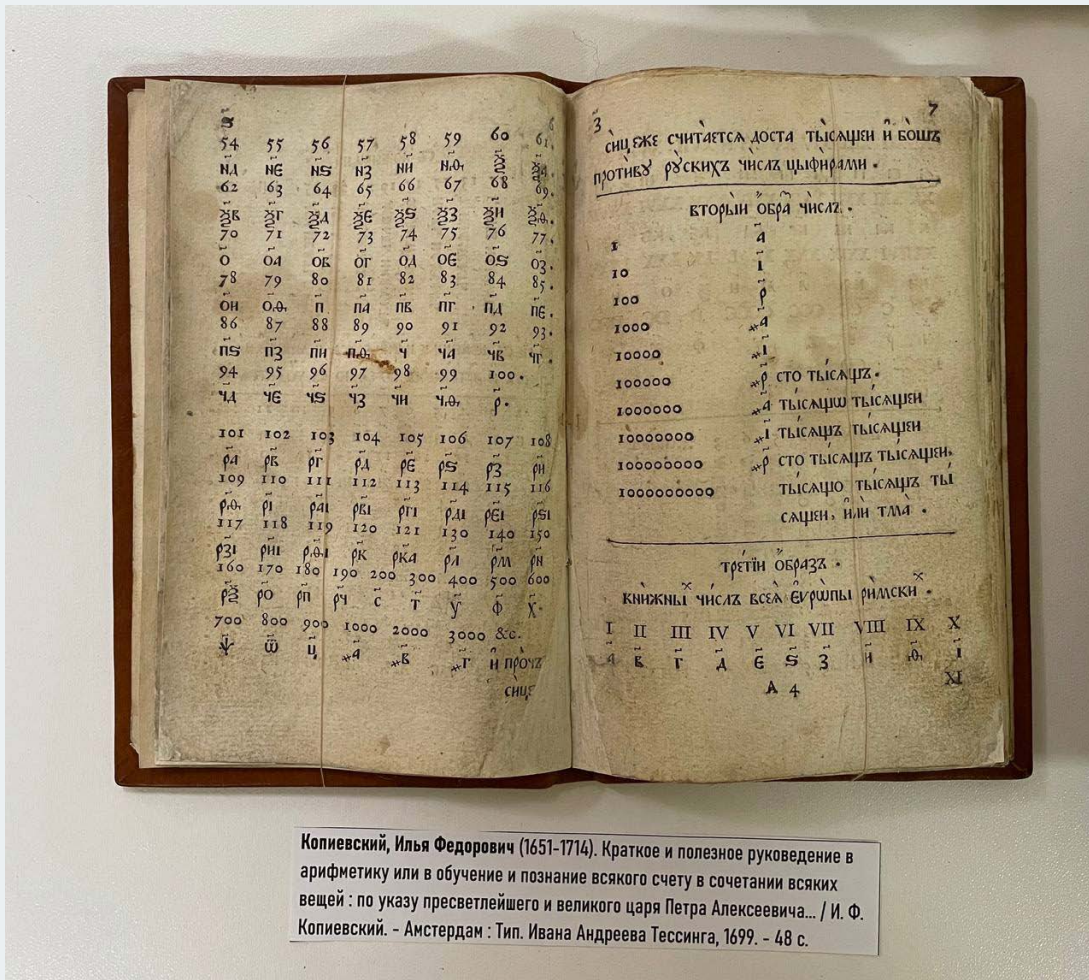 ѕ҃ 6
54 55 56 57 58 59 60 61.
н҃д н҃є н҃ѕ н҃з н҃и н҃.ѳ. ѯ҃ ѯ҃а.
62 63 64 65 66 67 68 69.
ѯ҃в ѯ҃г ѯ҃д ѯ҃є ѯ҃ѕ ѯ҃з ѯ҃и ѯ҃.ѳ.
70 71 72 73 74 75 76 77.
о҃ о҃а о҃в о҃г о҃д о҃є о҃ѕ о҃з.
78 79 80 81 82 83 84 85.
о҃н о҃.ѳ. п҃ п҃а п҃в п҃г п҃д п҃є.
86 87 88 89 90 91 92 93.
п҃ѕ п҃з п҃и п҃.ѳ. ч҃ ч҃а ч҃в ч҃г.
94 95 96 97 98 99 100.
ч҃д ч҃є ч҃ѕ ч҃з ч҃и ч҃.ѳ. р҃.
101 102 103 104 105 106 107 108
р҃а р҃в р҃г р҃д р҃є р҃ѕ р҃з р҃и
109 110 111 112 113 114 115 116
р҃.ѳ. р҃і р҃аі р҃ві р҃гі р҃ді р҃єі р҃ѕі
117 118 119 120 121 130 140 150
р҃зі р҃иі р҃.ѳ.і р҃к р҃ка р҃л р҃м р҃н
160 170 180 190 200 300 400 500 600
р҃ѯ р҃о р҃п р҃ч с҃ т҃ у҃ ф҃ х҃.
700 800 900 1000 2000 3000 &c.
ѱ҃ ѿ҃ ц҃ ҂а҃ ҂в҃ ҂г҃ и҆ про́чъ
си́це
з҃ 7
си́це же считаетсѧ доста ты́сѧщеи и҆ бо́шъ
проти́ву ру́скихъ чи́слъ цы́фірами.
вторы́и о҆́бра чи́слъ.
1 а҃
10 і҃
100 р҃
1000 ҂а҃
10000 ҂і҃
100000 ҂р҃ сто ты́сѧщъ.
1000000 ҂а҃ ты́сѧщѡ ты́сѧщеи
10000000 ҂і҃ ты́сѧщъ ты́сѧщеи
100000000 ҂р҃ сто ты́сѧщъ ты́сѧщеи.
1000000000 ты́сѧщо ты́сѧщъ ты́
сѧщеи, и҆лѝ тма.
тре́тїи о҆́бразъ.
кни́жныⷯ чи́слъ всеѧ̀ є҆ѵрѡ́пы ри́мскиⷯ.
I II III IV V VI VII VIII IX X
а҃ в҃ г҃ д҃ є҃ ѕ҃ з҃ и҃ .ѳ҃. і҃
А 4 XI
Копиевский, Илья Федорович (1651-1714). Краткое и полезное руководение в
арифметику или в обучение и познание всякого счету в сочетании всяких
вещей : по указу пресветлейшего и великого царя Петра Алексеевича... / И. Ф.
Копиевский. - Амстердам : Тип. Ивана Андреева Тессинга, 1699. - 48 с.